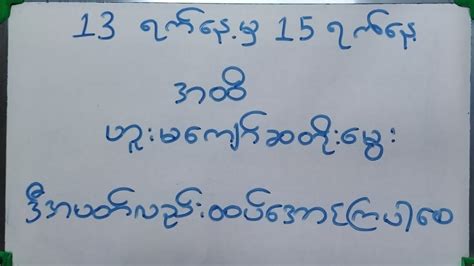 13 ရက်နေ့မှ 15 ရက်နေ့
အထိ
ဟူးမကျော်ဆတိုးမွေး
ဒီအပတ်လည်းထပ်အောင်ကြပါစေ